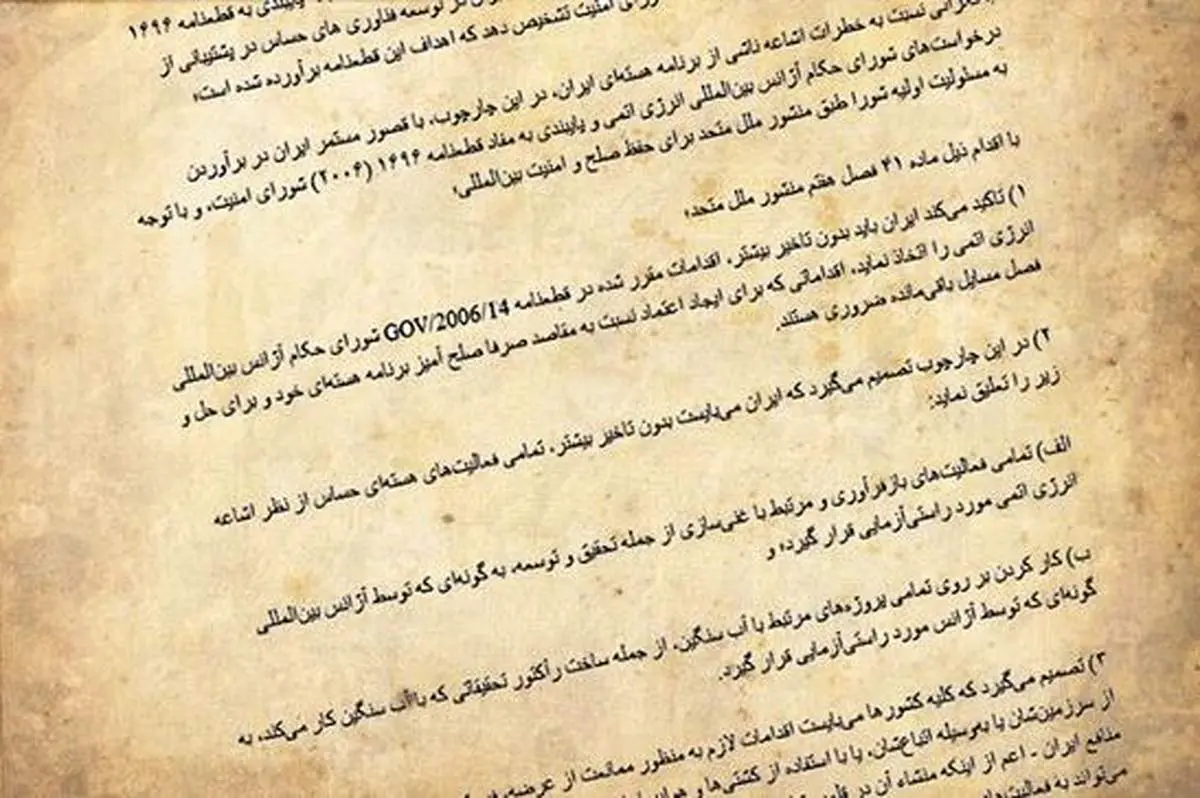 پایبندی به قطعنامه ۱۶۹۶
در توسعه فناوری های حساس در پشتیبانی از
شورای امنیت تشخیص دهد که اهداف این قطعنامه برآورده شده است؛
با نگرانی نسبت به خطرات اشاعه ناشی از برنامه هسته‌ای ایران، در این چارچوب، با قصور مستمر ایران در برآوردن
درخواست‌های شورای حکام آژانس بین‌المللی انرژی اتمی و پایبندی به مفاد قطعنامه ۱۶۹۶ (۲۰۰۶) شورای امنیت، و با توجه
به مسئولیت اولیه شورا طبق منشور ملل متحد برای حفظ صلح و امنیت بین‌المللی؛
با اقدام ذیل ماده ۴۱ فصل هفتم منشور ملل متحد؛
۱) تاکید می‌کند ایران باید بدون تاخیر بیشتر، اقدامات مقرر شده در قطعنامه GOV/2006/14 شورای حکام آژانس بین‌المللی
انرژی اتمی را اتخاذ نماید، اقداماتی که برای ایجاد اعتماد نسبت به مقاصد صرفا صلح آمیز برنامه هسته‌ای خود و برای حل و
فصل مسایل باقی‌مانده ضروری هستند.
۲) در این چارچوب تصمیم می‌گیرد که ایران می‌بایست بدون تاخیر بیشتر، تمامی فعالیت‌های هسته‌ای حساس از نظر اشاعه
زیر را تعلیق نماید:
الف) تمامی فعالیت‌های بازفرآوری و مرتبط با غنی‌سازی از جمله تحقیق و توسعه، به گونه‌ای که توسط آژانس بین‌المللی
انرژی اتمی مورد راستی‌آزمایی قرار گیرد؛ و
ب) کار کردن بر روی تمامی پروژه‌های مرتبط با آب سنگین، از جمله ساخت رآکتور تحقیقاتی که با آب سنگین کار می‌کند، به
گونه‌ای که توسط آژانس مورد راستی‌آزمایی قرار گیرد.
۳) تصمیم می‌گیرد که کلیه کشورها می‌بایست اقدامات لازم به منظور ممانعت از عرضه،
از سرزمین‌شان یا به‌وسیله اتباع‌شان، یا با استفاده از کشتی‌ها و
منافع ایران - اعم از اینکه منشاء آن در
می‌تواند به فعالیت‌های